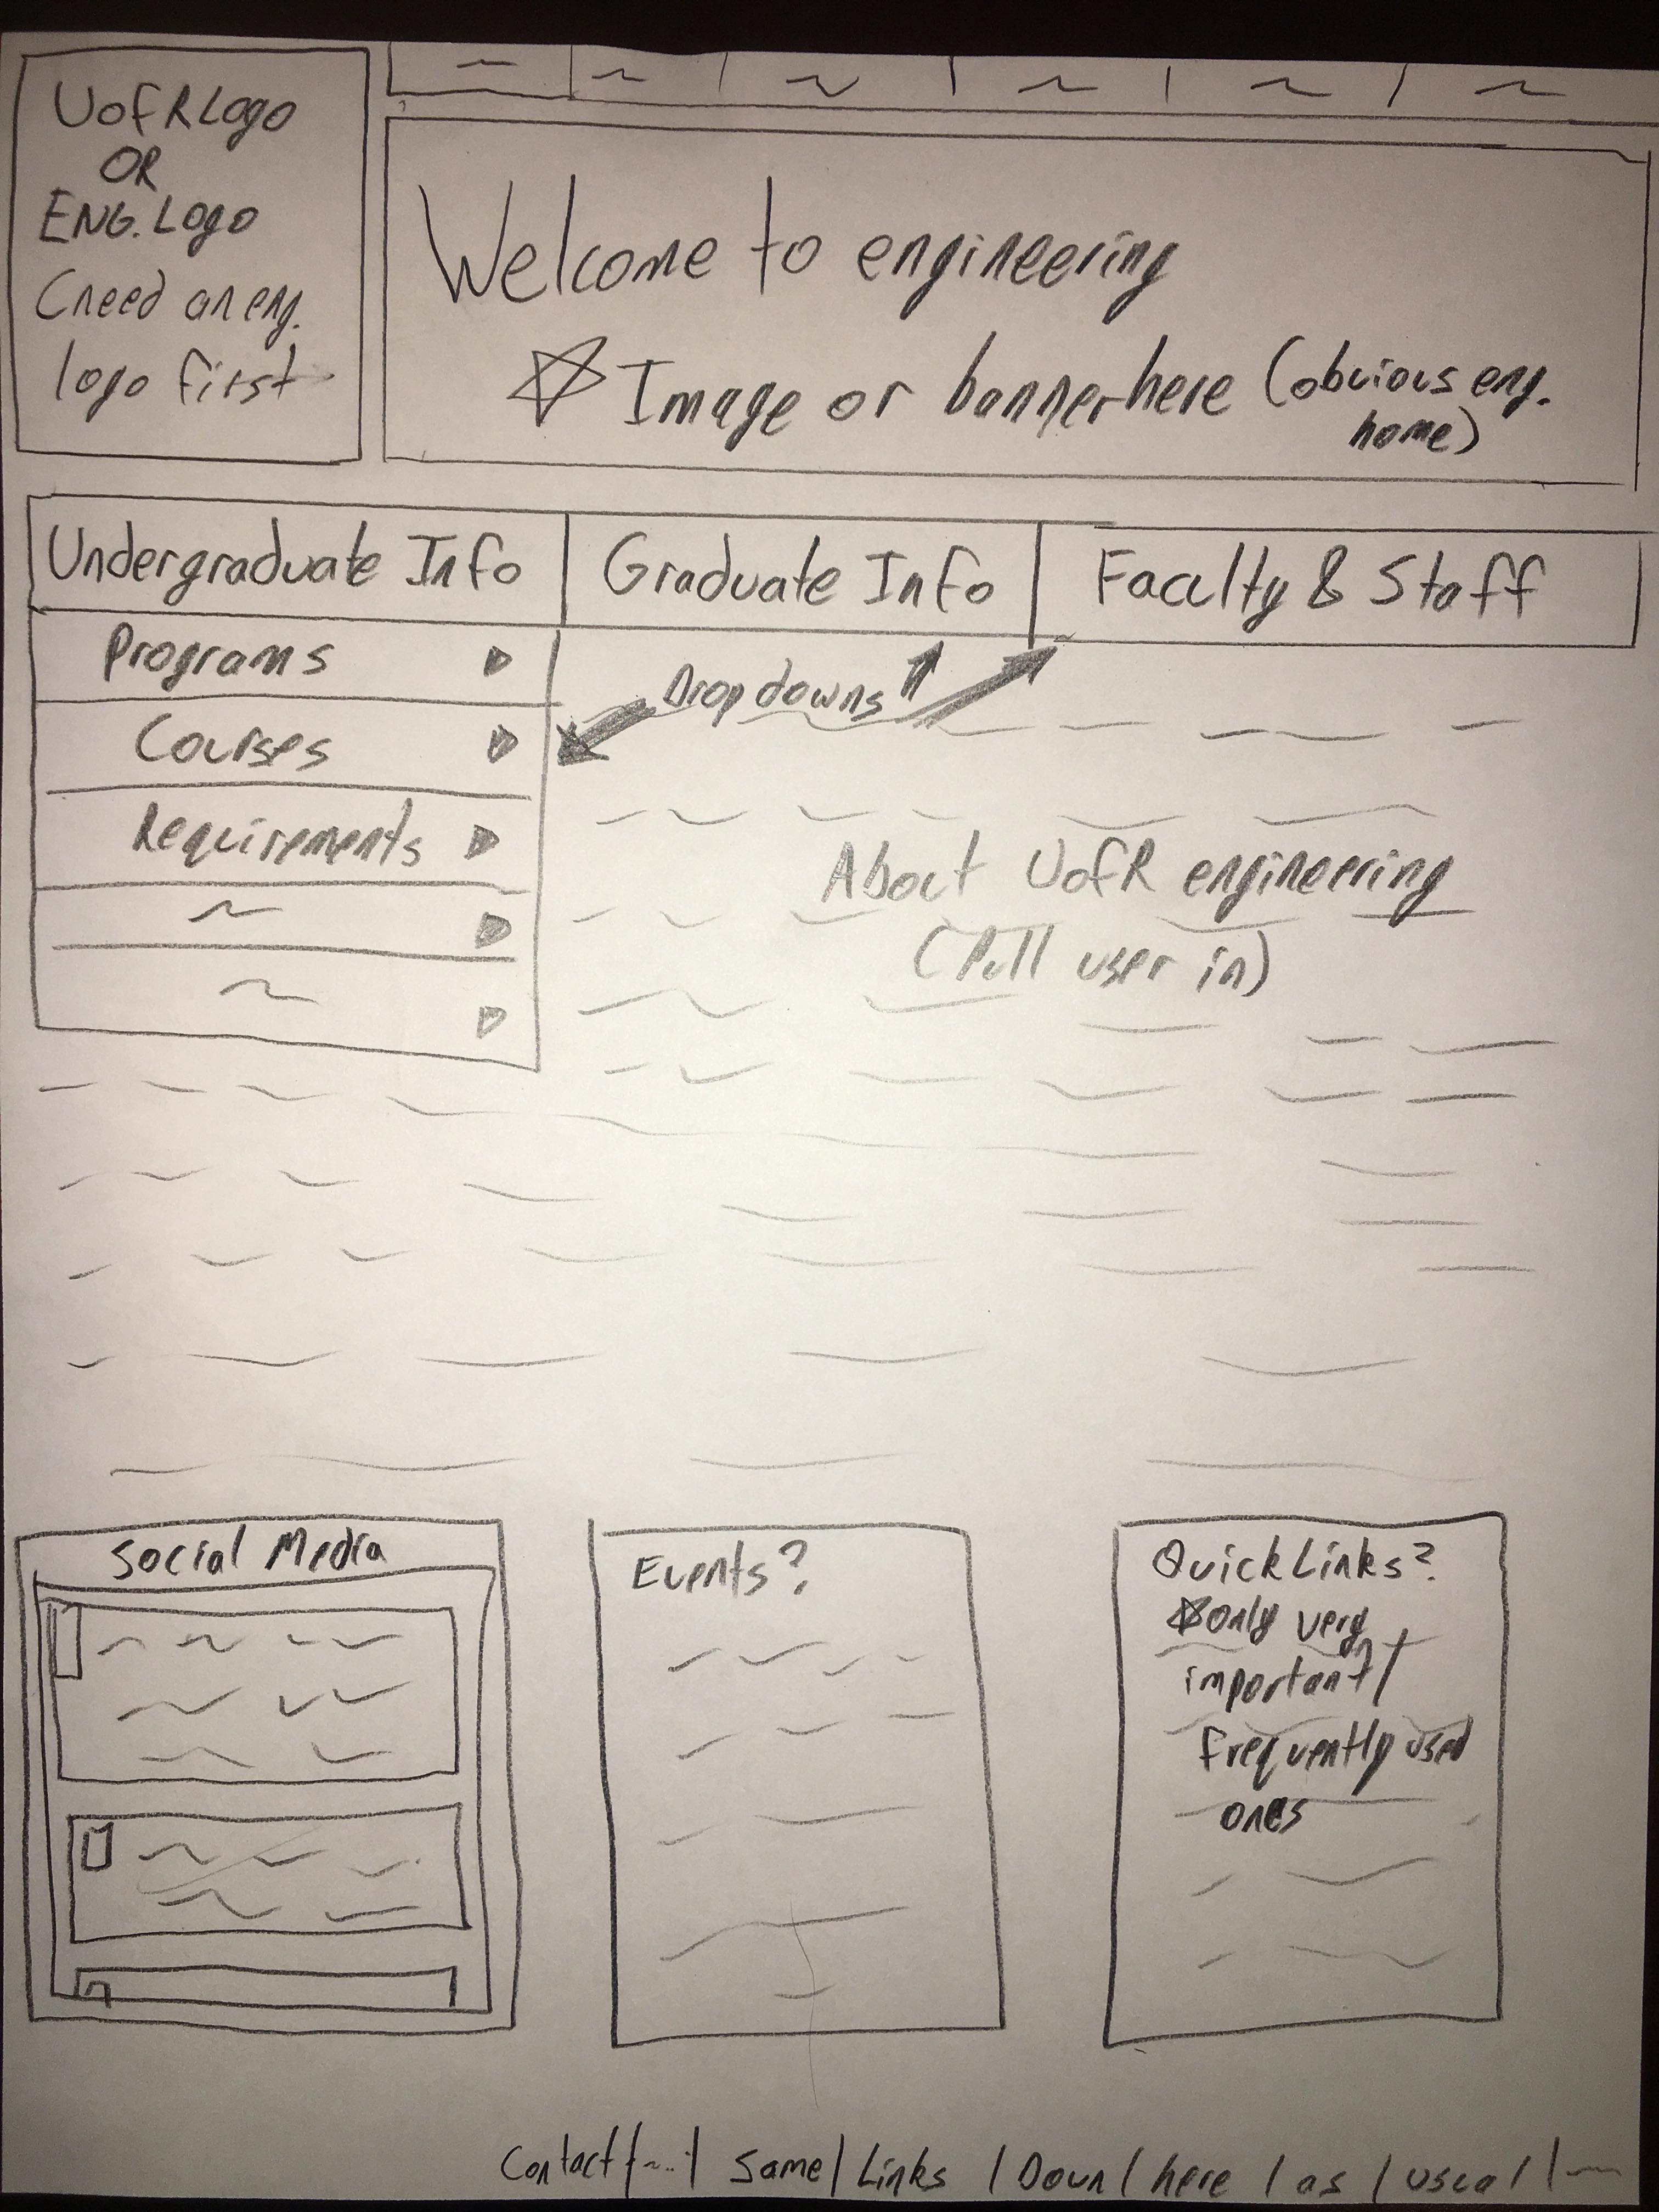 UofR Logo
OR
ENG. Logo
(need an eng.
logo first
Welcome to engineering
Image or banner here (obvious eng.
home)
Undergraduate Info
Graduate Info
Faculty & Staff
Programs
Courses
Requirements
Dropdowns
About UofR engineering
(Pull user in)
Social Media
Events?
Quick Links?
only very
important/
frequently used
ones
Contact / ~.. / Same / Links / Down / here / as / usual / ~